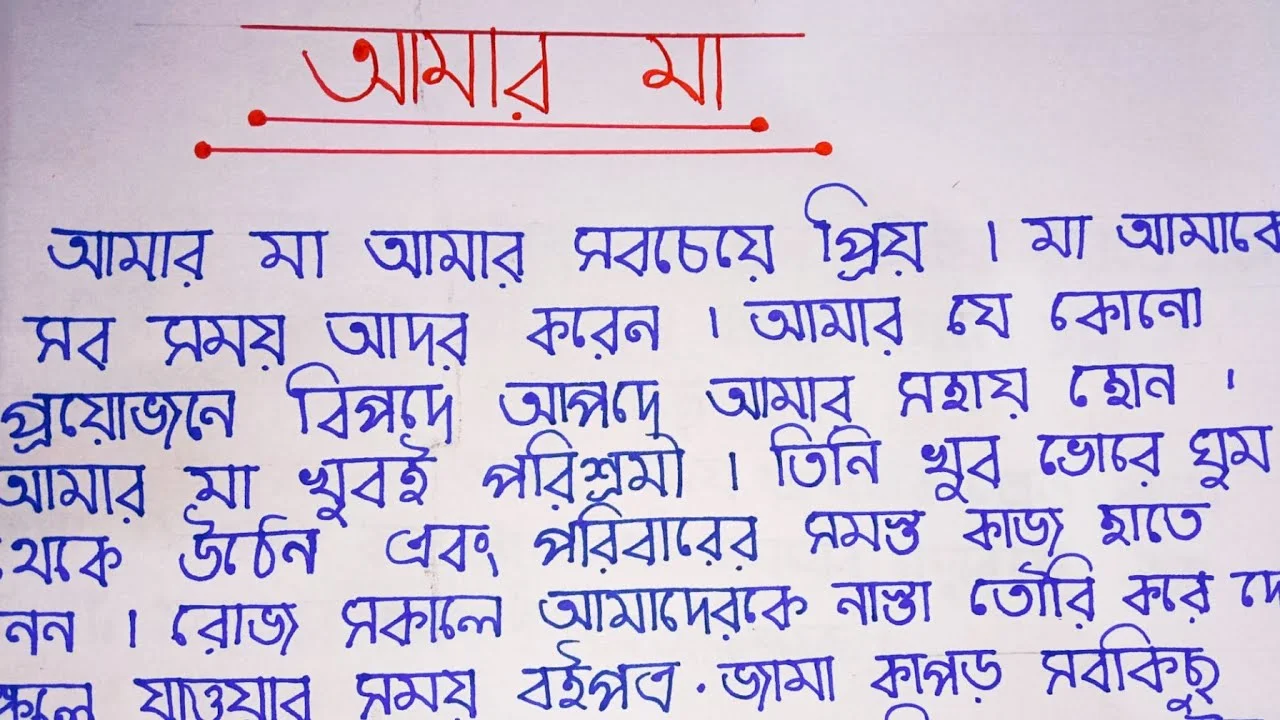 আমার মা
আমার মা আমার সবচেয়ে প্রিয় । মা আমাকে
সব সময় আদর করেন । আমার যে কোনো
প্রয়োজনে বিপদে আপদে আমার সহায় হোন ।
আমার মা খুবই পরিশ্রমী । তিনি খুব ভোরে ঘুম
থেকে উঠেন এবং পরিবারের সমস্ত কাজ হাতে
নেন । রোজ সকালে আমাদেরকে নাস্তা তৌরি করে দে
স্কুলে যাওয়ার সময় বইপত্র . জামা কাপড় সবকিছু